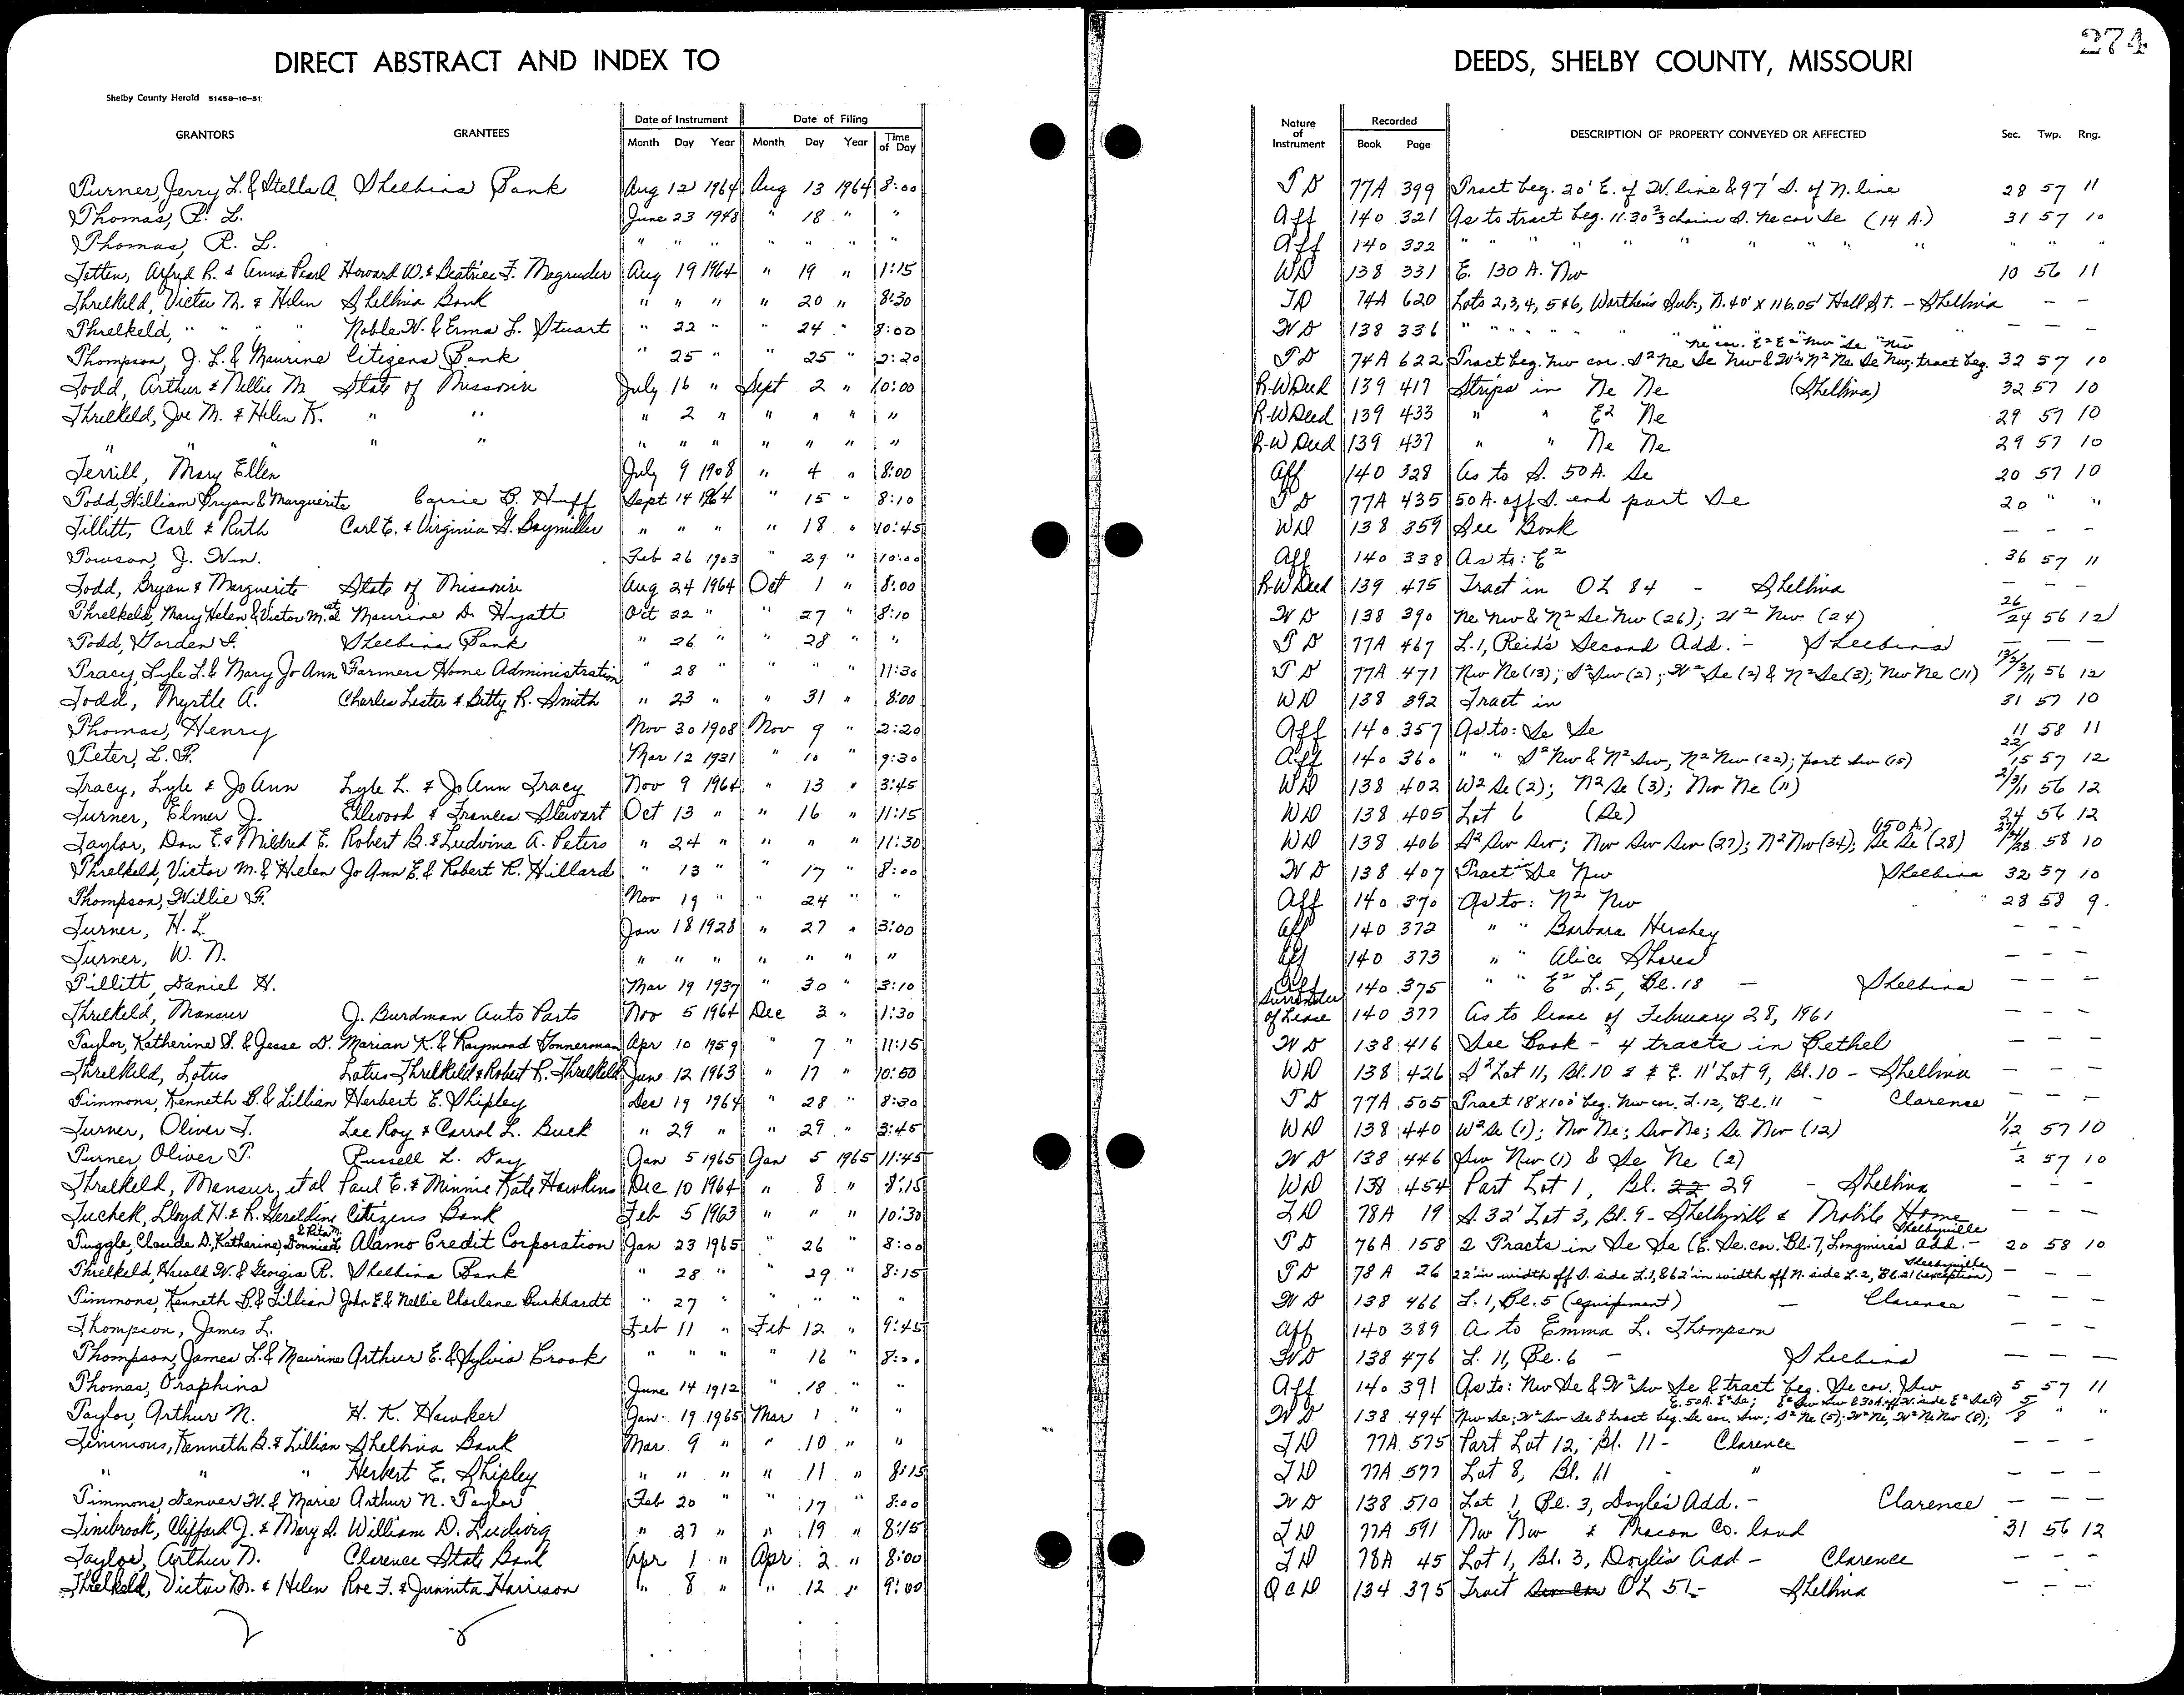 274
DIRECT ABSTRACT AND INDEX TO DEEDS, SHELBY COUNTY, MISSOURI
Shelby County Herald 51458-10-51
GRANTORS GRANTEES Date of Instrument Date of Filing Nature of Instrument Recorded DESCRIPTION OF PROPERTY CONVEYED OR AFFECTED Sec. Twp. Rng.
Month Day Year Month Day Year Time of Day Book Page
Turner, Jerry L. & Stella A. Shelbina Bank Aug 12 1964 Aug 13 1964 8:00 T D 77A 399 Tract beg. 20' E. of W. line & 97' S. of N. line 28 57 11
Thomas, R. L. June 23 1948 " 18 " " Aff 140 321 As to tract beg. 11.30 2/3 chains S. Ne cor Se (14 A.) 31 57 10
Thomas, R. L. " " " " " " " Aff 140 322 " " " " " " " " " " "
Tetten, Alfred R. & Anna Pearl Howard W. & Beatrice F. Magruder Aug 19 1964 " 19 " 1:15 WD 138 331 E. 130 A. Nw 10 56 11
Threlkeld, Victor M. & Helen Shelbina Bank " " " " 20 " 8:30 TD 74A 620 Lots 2, 3, 4, 5 & 6, Worthen's Sub., N. 40' x 116.05' Hall St. - Shelbina — —
Threlkeld, " " " Noble W. & Erma L. Stuart " 22 " " 24 " 8:00 WD 138 336 " " " " " " " " " — — —
Thompson, J. L. & Maurine Citizens Bank " 25 " " 25 " 2:20 TD 74A 622 Tract beg. Nw cor. S² Ne Se Nw & W² N² Ne Se Nw; tract beg. Ne cor. E² E² Nw Se Nw 32 57 10
Todd, Arthur & Nellie M. State of Missouri July 16 " Sept 2 " 10:00 R-W Deed 139 417 Strips in Ne Ne (Shelbina) 32 57 10
Threlkeld, Joe M. & Helen K. " " " 2 " " " " " R-W Deed 139 433 " " E² Ne 29 57 10
" " " " " " " " " " " " R-W Deed 139 437 " " Ne Ne 29 57 10
Terrill, Mary Ellen July 9 1908 " 4 " 8:00 Aff 140 328 As to S. 50 A. Se 20 57 10
Todd, William Bryan & Marguerite Carrie B. Huff Sept 14 1964 " 15 " 8:10 TD 77A 435 50 A. off S. end part Se 20 " "
Tillitt, Carl & Ruth Carl E. & Virginia G. Baymiller " " " " 18 " 10:45 WD 138 359 See Book — — —
Towson, J. Wm. Feb 26 1903 " 29 " 10:00 Aff 140 338 As to: E² 36 57 11
Todd, Bryan & Marguerite State of Missouri Aug 24 1964 Oct 1 " 8:00 R-W Deed 139 475 Tract in OL 84 - Shelbina — — —
Threlkeld, Mary Helen & Victor M. et al Maurine D. Hyatt Oct 22 " " 27 " 8:10 WD 138 390 Ne Nw & N² Se Nw (26); W² Nw (24) 26/24 56 12
Todd, Gorden F. Shelbina Bank " 26 " " 28 " " TD 77A 467 L. 1, Reid's Second Add. - Shelbina — — —
Tracy, Lyle L. & Mary Jo Ann Farmers Home Administration " 28 " " " 11:30 TD 77A 471 Nw Ne (13); S² Sw (2); W² Se (2) & N² Se (3); Nw Ne (11) 13/2/3/11 56 12
Todd, Myrtle A. Charles Lester & Betty R. Smith " 23 " " 31 " 8:00 WD 138 392 Tract in 31 57 10
Thomas, Henry Nov 30 1908 Nov 9 " 2:20 Aff 140 357 As to: Se Se 11 58 11
Teter, L. F. Mar 12 1931 " 10 " 9:30 Aff 140 360 " " S² Nw & N² Sw, N² Nw (22); part Sw (15) 22/15 57 12
Tracy, Lyle & Jo Ann Lyle L. & Jo Ann Tracy Nov 9 1964 " 13 " 3:45 WD 138 402 W² Se (2); N² Se (3); Nw Ne (11) 2/3/11 56 12
Turner, Elmer J. Ellwood & Frances Stewart Oct 13 " " 16 " 11:15 WD 138 405 Lot 6 (Se) 24 56 12
Taylor, Don E. & Mildred E. Robert B. & Ludvina A. Peters " 24 " " " " 11:30 WD 138 406 S² Sw Sw; Nw Sw Sw (27); N² Nw (34); Se Se (28) (150 A.) 27/34/28 58 10
Threlkeld, Victor M. & Helen Jo Ann E. & Robert R. Hillard " 13 " " 17 " 8:00 WD 138 407 Tract in Se Nw Shelbina 32 57 10
Thompson, Willie F. Nov 19 " " 24 " " Aff 140 370 As to: N² Nw 28 58 9
Turner, H. L. Jan 18 1928 " 27 " 3:00 Aff 140 372 " " Barbara Hershey — — —
Turner, W. N. " " " " " " " Aff 140 373 " " Alice Shores — — —
Tillitt, Daniel H. Mar 19 1937 " 30 " 3:10 Aff 140 375 " " E² L. 5, Bl. 18 — Shelbina — — —
Threlkeld, Mansur J. Burdman Auto Parts Nov 5 1964 Dec 3 " 1:30 Surrender of Lease 140 377 As to lease of February 28, 1961 — — —
Taylor, Katherine S. & Jesse D. Marian K. & Raymond Gonnerman Apr 10 1959 " 7 " 11:15 WD 138 416 See Book - 4 tracts in Bethel — — —
Threlkeld, Lotus Lotus Threlkeld & Robert R. Threlkeld June 12 1963 " 17 " 10:50 WD 138 426 S² Lot 11, Bl. 10 & & E. 11' Lot 9, Bl. 10 - Shelbina — — —
Timmons, Kenneth B. & Lillian Herbert E. Shipley Dec 19 1964 " 28 " 8:30 TD 77A 505 Tract 18' x 100' beg. Nw cor. L. 12, Bl. 11 - Clarence — — —
Turner, Oliver T. Lee Roy & Carrol L. Buck " 29 " " 29 " 3:45 WD 138 440 W² Se (1); Nw Ne; Sw Ne; Se Nw (12) 1/12 57 10
Turner, Oliver T. Russell L. Day Jan 5 1965 Jan 5 1965 11:45 WD 138 446 Sw Nw (1) & Se Ne (2) 1/2 57 10
Threlkeld, Mansur, et al Paul E. & Minnie Kate Hawkins Dec 10 1964 " 8 " 8:15 WD 138 454 Part Lot 1, Bl. 22 29 - Shelbina — — —
Tuchek, Lloyd H. & R. Geraldine Citizens Bank Feb 5 1963 " " " 10:30 TD 78A 19 S. 32' Lot 3, Bl. 9 - Shelbyville & Mobile Home — — —
Tuggle, Claude D., Katherine, Donnie L. & Rita M. Alamo Credit Corporation Jan 23 1965 " 26 " 8:00 TD 76A 158 2 Tracts in Se Se (E. Se. cor. Bl. 7, Longmire's Add. - Shelbyville 20 58 10
Threlkeld, Harold W. & Georgia R. Shelbina Bank " 28 " " 29 " 8:15 TD 78A 26 22' in width off S. side L. 1, & 62' in width off N. side L. 2, Bl. 21 (exception) Shelbyville — — —
Timmons, Kenneth B. & Lillian John E. & Nellie Charlene Burkhardt " 27 " " " " " WD 138 466 L. 1, Bl. 5 (equipment) — Clarence — — —
Thompson, James L. Feb 11 " Feb 12 " 9:45 Aff 140 389 A to Emma L. Thompson — — —
Thompson, James L. & Maurine Arthur E. & Sylvia Crook " " " " 16 " 8:00 WD 138 476 L. 11, Bl. 6 — Shelbina — — —
Thomas, Oraphina June 14 1912 " 18 " " Aff 140 391 As to: Nw Se & W² Sw Se & tract beg. Se cor. Sw 5 57 11
Taylor, Arthur N. H. K. Hawker Jan 19 1965 Mar 1 " " WD 138 494 Nw Se; W² Sw Se & tract beg. Se cor. Sw; S² Ne (5); W² Ne, W² Ne Nw (8); 5/8 " "
Timmons, Kenneth B. & Lillian Shelbina Bank Mar 9 " " 10 " " TD 77A 575 Part Lot 12, Bl. 11 - Clarence — — —
" " " Herbert E. Shipley " " " " 11 " 8:15 TD 77A 577 Lot 8, Bl. 11 " — — —
Timmons, Denver W. & Marie Arthur N. Taylor Feb 20 " " 17 " 8:00 WD 138 510 Lot 1, Bl. 3, Doyle's Add. - Clarence — — —
Timbrook, Clifford J. & Mary S. William D. Ludwig " 27 " " 19 " 8:15 TD 77A 591 Nw Nw & Macon Co. land 31 56 12
Taylor, Arthur N. Clarence State Bank Apr 1 " Apr 2 " 8:00 TD 78A 45 Lot 1, Bl. 3, Doyle's Add - Clarence — — —
Threlkeld, Victor M. & Helen Roe F. & Juanita Harrison " 8 " " 12 " 9:00 QCD 134 375 Tract OL 51 - Shelbina — — —